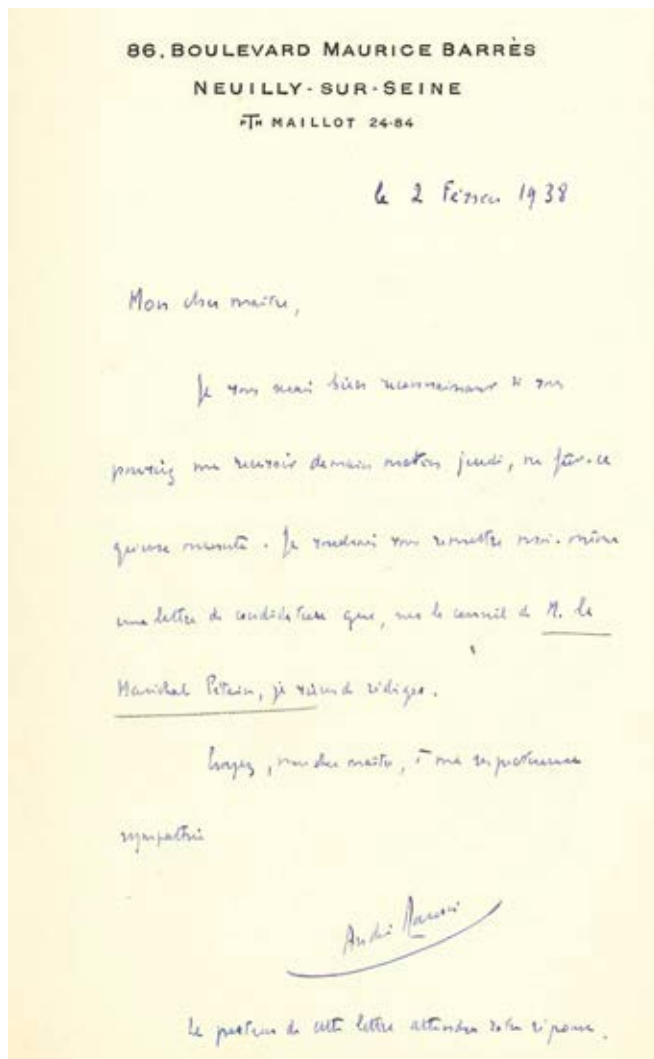 86, BOULEVARD MAURICE BARRÈS
NEUILLY-SUR-SEINE
MAILLOT 24-84
le 2 Février 1938
Mon cher maître,
Je vous serai bien reconnaissant si vous
pouviez me recevoir demain matin jeudi, ne fût-ce
qu'une minute. Je voudrais vous remettre moi-même
une lettre de candidature que, sur le conseil de M. le
Maréchal Pétain, je viens de rédiger.
Croyez, mon cher maître, à ma respectueuse
sympathie
André Maurois
Le porteur de cette lettre attendra votre réponse.